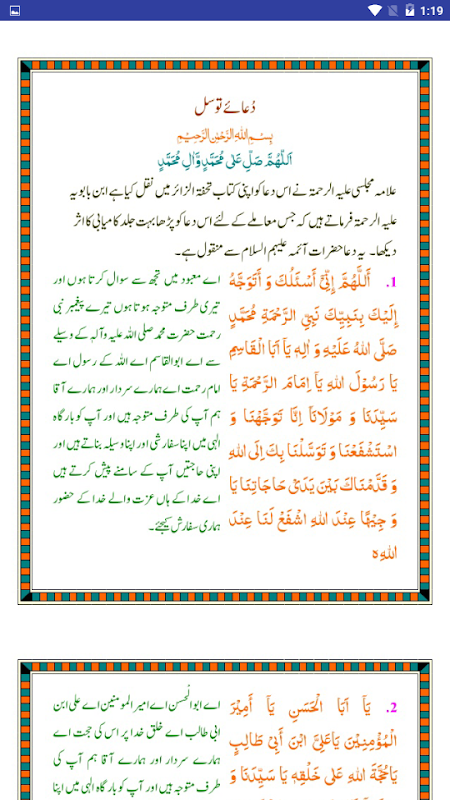 1:19
دُعائے توسل
بِسْمِ اللهِ الرَّحْمٰنِ الرَّحِيْمِ
اَللّٰهُمَّ صَلِّ عَلٰى مُحَمَّدٍ وَّاٰلِ مُحَمَّدٍ
علامہ مجلسی علیہ الرحمۃ نے اس دعا کو اپنی کتاب تحفۃ الزائر میں نقل کیا ہے ابن بابویہ
علیہ الرحمۃ فرماتے ہیں کہ جس معاملے کے لئے اس دعا کو پڑھا بہت جلد کامیابی کا اثر
دیکھا۔ یہ دعا حضرات آئمہ علیہم السلام سے منقول ہے۔
1. اَللّٰهُمَّ اِنِّیْۤ اَسْئَلُكَ وَ اَتَوَجَّهُ
اِلَيْكَ بِنَبِيِّكَ نَبِيِّ الرَّحْمَةِ مُحَمَّدٍ
صَلَّى اللهُ عَلَيْهِ وَ اٰلِهٖ يَاۤ اَبَا الْقَاسِمِ
يَا رَسُوْلَ اللهِ يَاۤ اِمَامَ الرَّحْمَةِ يَا
سَيِّدَنَا وَ مَوْلَانَاۤ اِنَّا تَوَجَّهْنَا وَ
اسْتَشْفَعْنَا وَ تَوَسَّلْنَا بِكَ اِلَى اللهِ
وَ قَدَّمْنَاكَ بَيْنَ يَدَيْ حَاجَاتِنَا يَا
وَجِيْهًا عِنْدَ اللهِ اشْفَعْ لَنَا عِنْدَ
اللهِ ہ
اے معبود میں تجھ سے سوال کرتا ہوں اور
تیری طرف متوجہ ہوتا ہوں تیرے پیغمبر نبی
رحمت حضرت محمد صلی اللہ علیہ وآلہ کے وسیلے
سے اے ابوالقاسم اے اللہ کے رسول اے
امام رحمت اے ہمارے سردار اور ہمارے آقا
ہم آپ کی طرف متوجہ ہیں اور آپ کو بارگاہ
الٰہی میں اپنا سفارشی اور اپنا وسیلہ بناتے ہیں اور
اپنی حاجتیں آپ کے سامنے پیش کرتے ہیں
اے خدا کے ہاں عزت والے خدا کے حضور
ہماری سفارش کیجئے۔
2. يَاۤ اَبَا الْحَسَنِ يَاۤ اَمِيْرَ
الْمُؤْمِنِيْنَ يَا عَلِيَّ ابْنَ اَبِيْ طَالِبٍ
يَا حُجَّةَ اللهِ عَلٰى خَلْقِهٖ يَا سَيِّدَنَا وَ
اے ابوالحسن اے امیر المومنین اے علی ابن
ابی طالب اے خلق خدا پر اس کی حجت اے
ہمارے سردار اور ہمارے آقا ہم آپ کی
طرف متوجہ ہیں اور آپ کو بارگاہ الٰہی میں اپنا